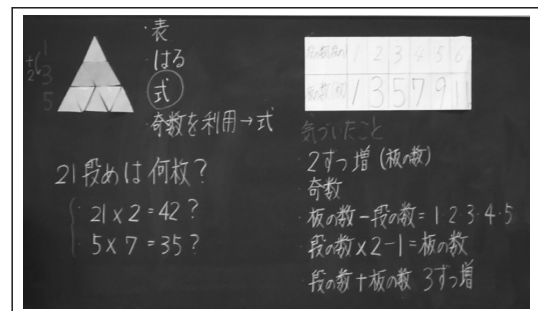 1
3
5
+2
・表
・はる
式
・奇数を利用→式
21段めは何枚？
・21×2=42？
・5×7=35？
1 2 3 4 5 6
板の数(枚) 1 3 5 7 9 11
気づいたこと
・2ずつ増(板の数)
・奇数
・板の数−段の数=1・2・3・4・5
・段の数×2−1=板の数
・段の数+板の数 3ずつ増